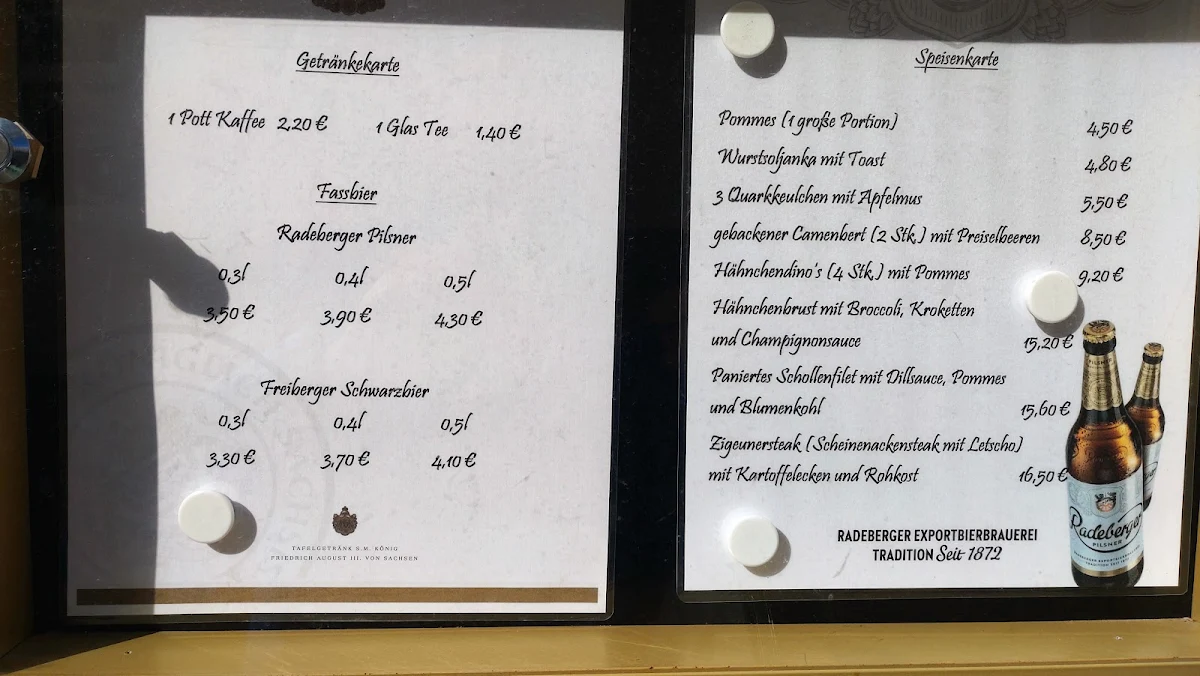 Getränkekarte
1 Pott Kaffee 2,20 € 1 Glas Tee 1,40 €
Fassbier
Radeberger Pilsner
0,3l 0,4l 0,5l
3,50 € 3,90 € 4,30 €
Freiberger Schwarzbier
0,3l 0,4l 0,5l
3,30 € 3,70 € 4,10 €
TAFELGETRÄNK S.M. KÖNIG
FRIEDRICH AUGUST III. VON SACHSEN
Speisenkarte
Pommes (1 große Portion) 4,50 €
Wurstsoljanka mit Toast 4,80 €
3 Quarkkeulchen mit Apfelmus 5,50 €
gebackener Camenbert (2 Stk.) mit Preiselbeeren 8,50 €
Hähnchendino's (4 Stk.) mit Pommes 9,20 €
Hähnchenbrust mit Broccoli, Kroketten
und Champignonsauce 15,20 €
Paniertes Schollenfilet mit Dillsauce, Pommes
und Blumenkohl 15,60 €
Zigeunersteak (Scheinenackensteak mit Letscho)
mit Kartoffelecken und Rohkost 16,50 €
RADEBERGER EXPORTBIERBRAUEREI
TRADITION Seit 1872
Radeberger
PILSNER